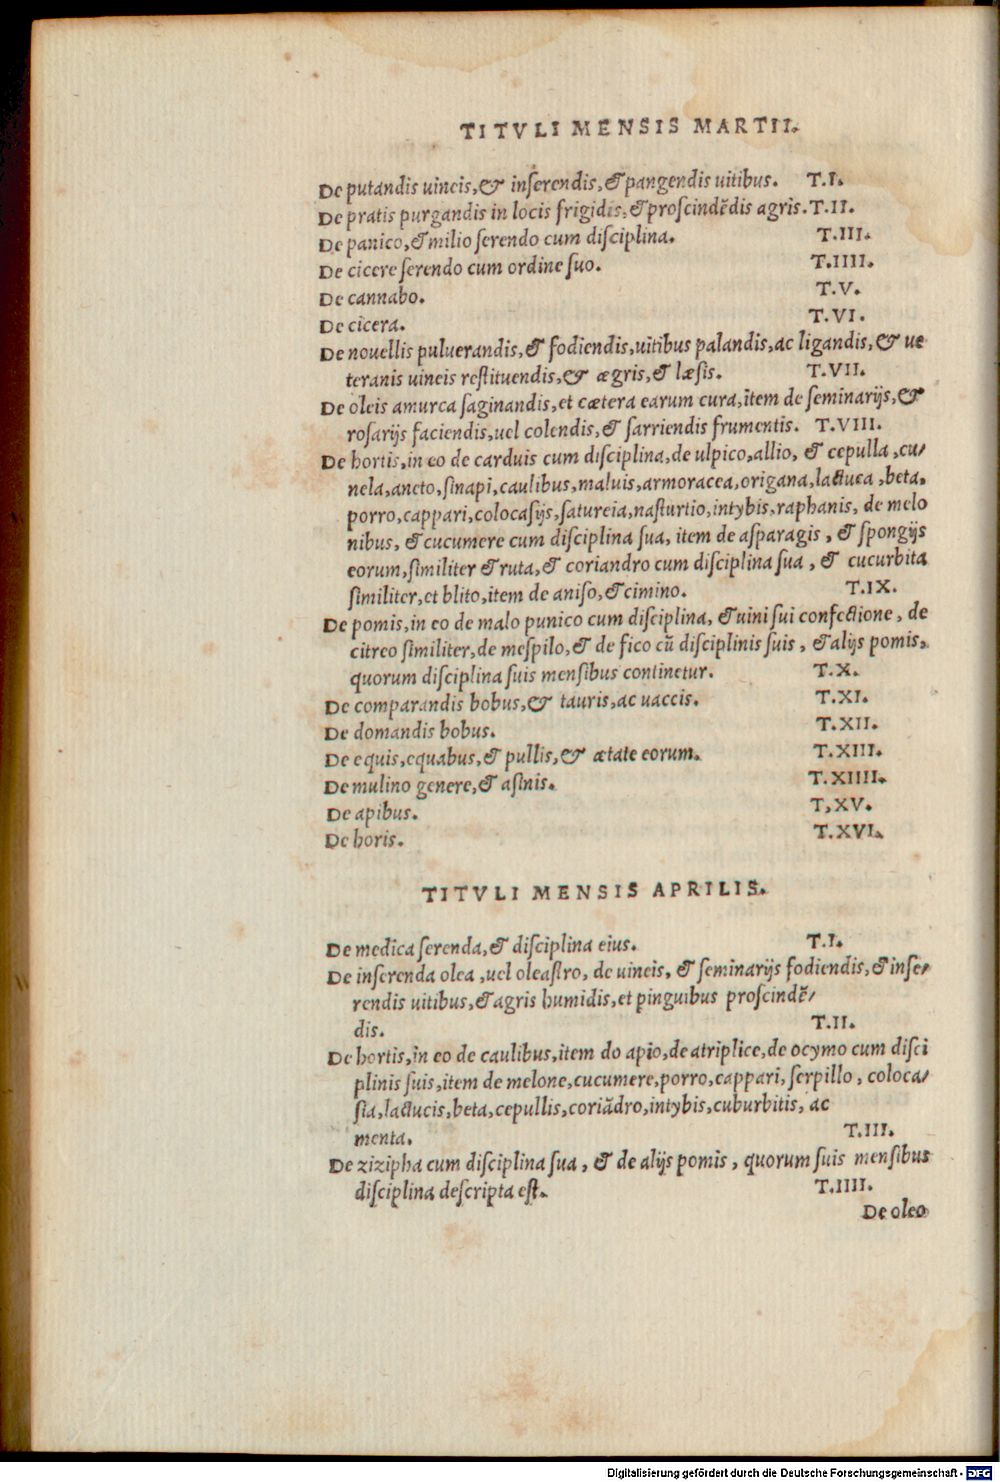 TITVLI MENSIS MARTII.
De putandis uineis, & inſerendis, & pangendis uitibus. T.I.
De pratis purgandis in locis frigidis, & proſcindẽdis agris. T.II.
De panico, & milio ſerendo cum diſciplina. T.III.
De cicere ſerendo cum ordine ſuo. T.IIII.
De cannabo. T.V.
De cicera. T.VI.
De nouellis puluerandis, & fodiendis, uitibus palandis, ac ligandis, & ue
teranis uineis reſtituendis, & ægris, & læſis. T.VII.
De oleis amurca ſaginandis, et cætera earum cura, item de ſeminarijs, &
roſarijs faciendis, uel colendis, & ſarriendis frumentis. T.VIII.
De hortis, in eo de carduis cum diſciplina, de ulpico, allio, & cepulla, cu/
nela, aneto, ſinapi, caulibus, maluis, armoracea, origana, lactuca, beta.
porro, cappari, colocaſijs, ſatureia, naſturtio, intybis, raphanis, de melo
nibus, & cucumere cum diſciplina ſua, item de aſparagis, & ſpongijs
eorum, ſimiliter & ruta, & coriandro cum diſciplina ſua, & cucurbita
ſimiliter, et blito, item de aniſo, & cimino. T.IX.
De pomis, in eo de malo punico cum diſciplina, & uini ſui confectione, de
citreo ſimiliter, de meſpilo, & de fico cũ diſciplinis ſuis, & alijs pomis,
quorum diſciplina ſuis menſibus continetur. T.X.
De comparandis bobus, & tauris, ac uaccis. T.XI.
De domandis bobus. T.XII.
De equis, equabus, & pullis, & ætate eorum. T.XIII.
De mulino genere, & aſinis. T.XIIII.
De apibus. T,XV.
De horis. T.XVI.
TITVLI MENSIS APRILIS.
De medica ſerenda, & diſciplina eius. T.I.
De inſerenda olea, uel oleaſtro, de uineis, & ſeminarijs fodiendis, & inſe/
rendis uitibus, & agris humidis, et pinguibus proſcindẽ/
dis. T.II.
De hortis, in eo de caulibus, item do apio, de atriplice, de ocymo cum diſci
plinis ſuis, item de melone, cucumere, porro, cappari, ſerpillo, coloca/
ſia, lactucis, beta, cepullis, coriãdro, intybis, cuburbitis, ac
menta. T.III.
De zizipha cum diſciplina ſua, & de alijs pomis, quorum ſuis menſibus
diſciplina deſcripta eſt. T.IIII.
De oleo
Digitalisierung gefördert durch die Deutsche Forschungsgemeinschaft - DFG